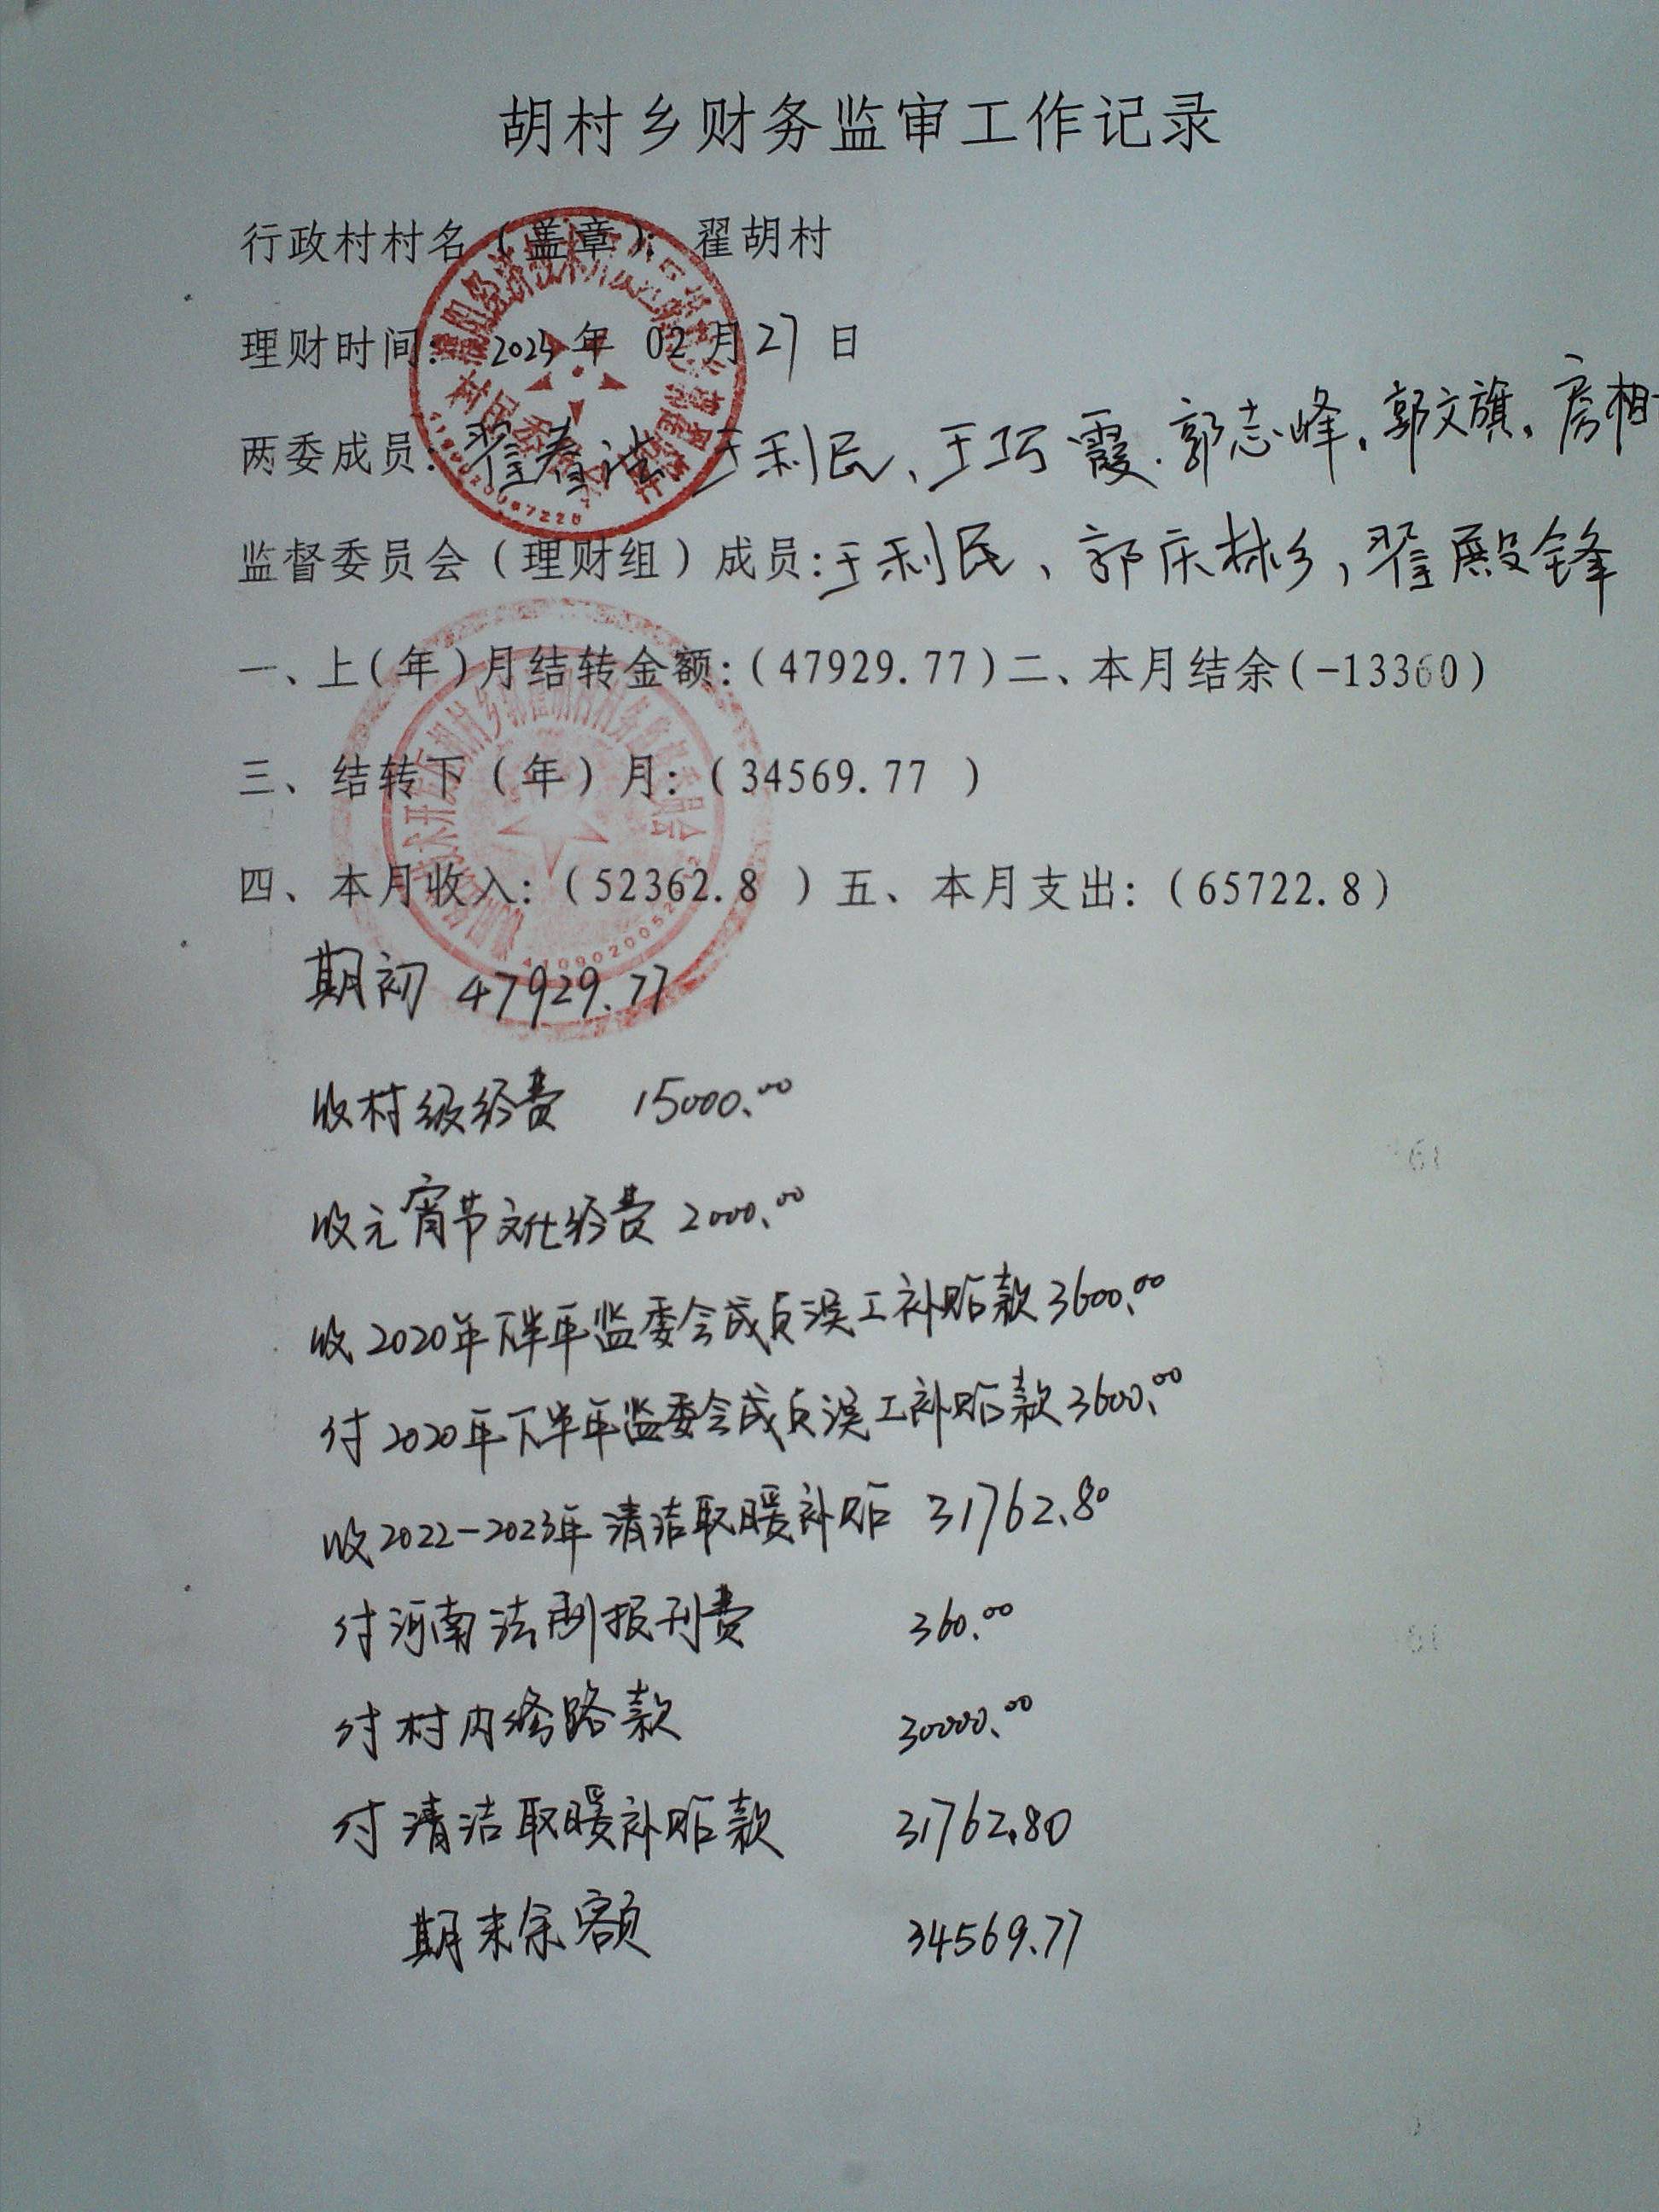 胡村乡财务监审工作记录
行政村村名（盖章）：翟胡村
理财时间： 年 02月27日
两委成员：翟春 于利民、于巧霞.郭志峰.郭文旗.房相
监督委员会（理财组）成员:于利民、郭庆彬,翟殿锋
一、上(年)月结转金额:(47929.77)二、本月结余(-13360)
三、结转下（年）月:(34569.77 )
四、本月收入:(52362.8 ）五、本月支出:(65722.8)
期初 47929.77
收村级经费 15000.00
收元宵节文化经费 2000.00
收2020年下半年监委会成员误工补贴款3600.00
付2020年下半年监委会成员误工补贴款3600.00
收2022-2023年清洁取暖补贴 31762.80
付河南法制报刊费 360.00
付村内修路款 30000.00
付清洁取暖补贴款 31762.80
期末余额 34569.77